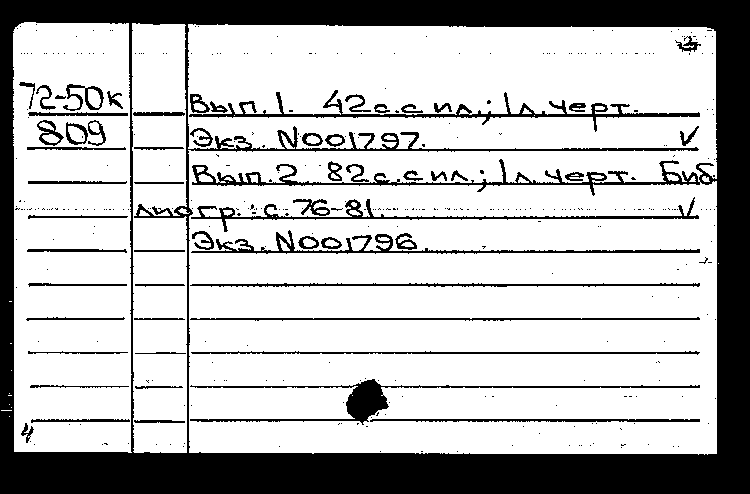 2
72-50к Вып. 1. 42 с. с ил.; 1 л. черт.
809 Экз. N001797. ✓
Вып. 2 82 с. с ил.; 1 л. черт. Биб
лиогр.: с. 76-81. ✓
Экз. N001796.
4